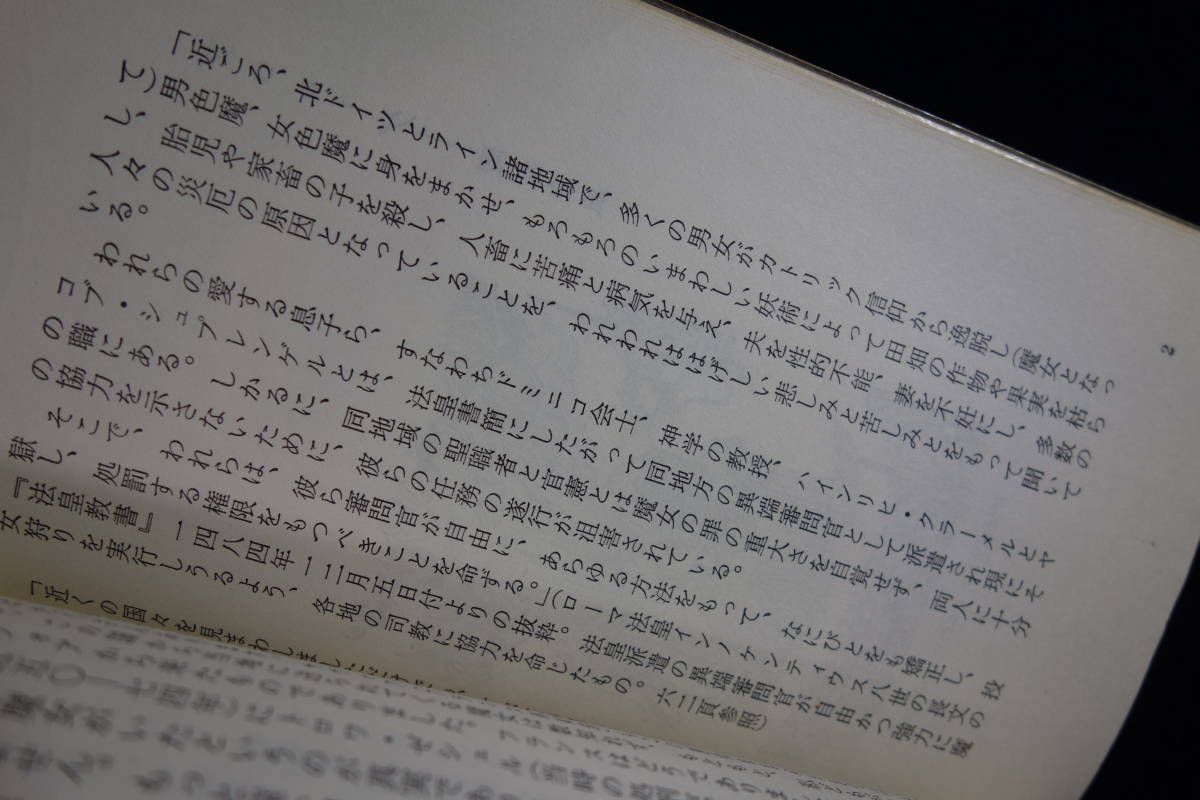 2
「近ごろ、北ドイツとライン諸地域で、多くの男女がカトリック信仰から逸脱し(魔女となっ
て)男色魔、女色魔に身をまかせ、もろもろのいまわしい妖術によって田畑の作物や果実を枯ら
し、胎児や家畜の子を殺し、人畜に苦痛と病気を与え、夫を性的不能、妻を不妊にし、多数の
人々の災厄の原因となっていることを、われわれははげしい悲しみと苦しみとをもって聞いて
いる。
われらの愛する息子ら、すなわちドミニコ会士、神学の教授、ハインリヒ・クラーメルとヤ
コブ・シュプレンゲルとは、法皇書簡にしたがって同地方の異端審問官として派遣され現にそ
の職にある。しかるに、同地域の聖職者と官憲とは魔女の罪の重大さを自覚せず、両人に十分
の協力を示さないために、彼らの任務の遂行が阻害されている。
そこで、われらは、彼ら審問官が自由に、あらゆる方法をもって、なにびとをも矯正し、投
獄し、処罰する権限をもつべきことを命ずる。」(ローマ法皇インノケンティウス八世の長文の
『法皇教書』一四八四年一二月五日付よりの抜粋。法皇派遣の異端審問官が自由かつ強力に魔
女狩りを実行しうるよう、各地の司教に協力を命じたもの。六二頁参照)
「近くの国々を見まわしまし
から来たいものでありました。フランスはどうでありまし
七四年)にトロワ・ゼシェル(当時の
魔女がいたというのが真実であ
せん。もっと